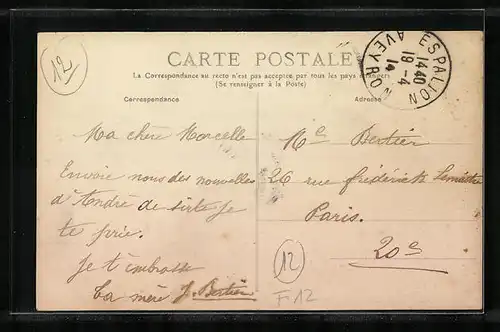 12
CARTE POSTALE
La Correspondance au recto n'est pas acceptée par tous les pays étrangers
(Se renseigner à la Poste)
ESPALION
14 40
19-4
14
AVEYRON
Correspondance
Adresse
Ma chère Marcelle
Envoie nous des nouvelles
d'André de suite je
te prie.
Je t'embrasse
Ta mère J. Bertier
Mlle Bertier
26 rue Frédérick Lemaître
Paris.
20e
12
F12